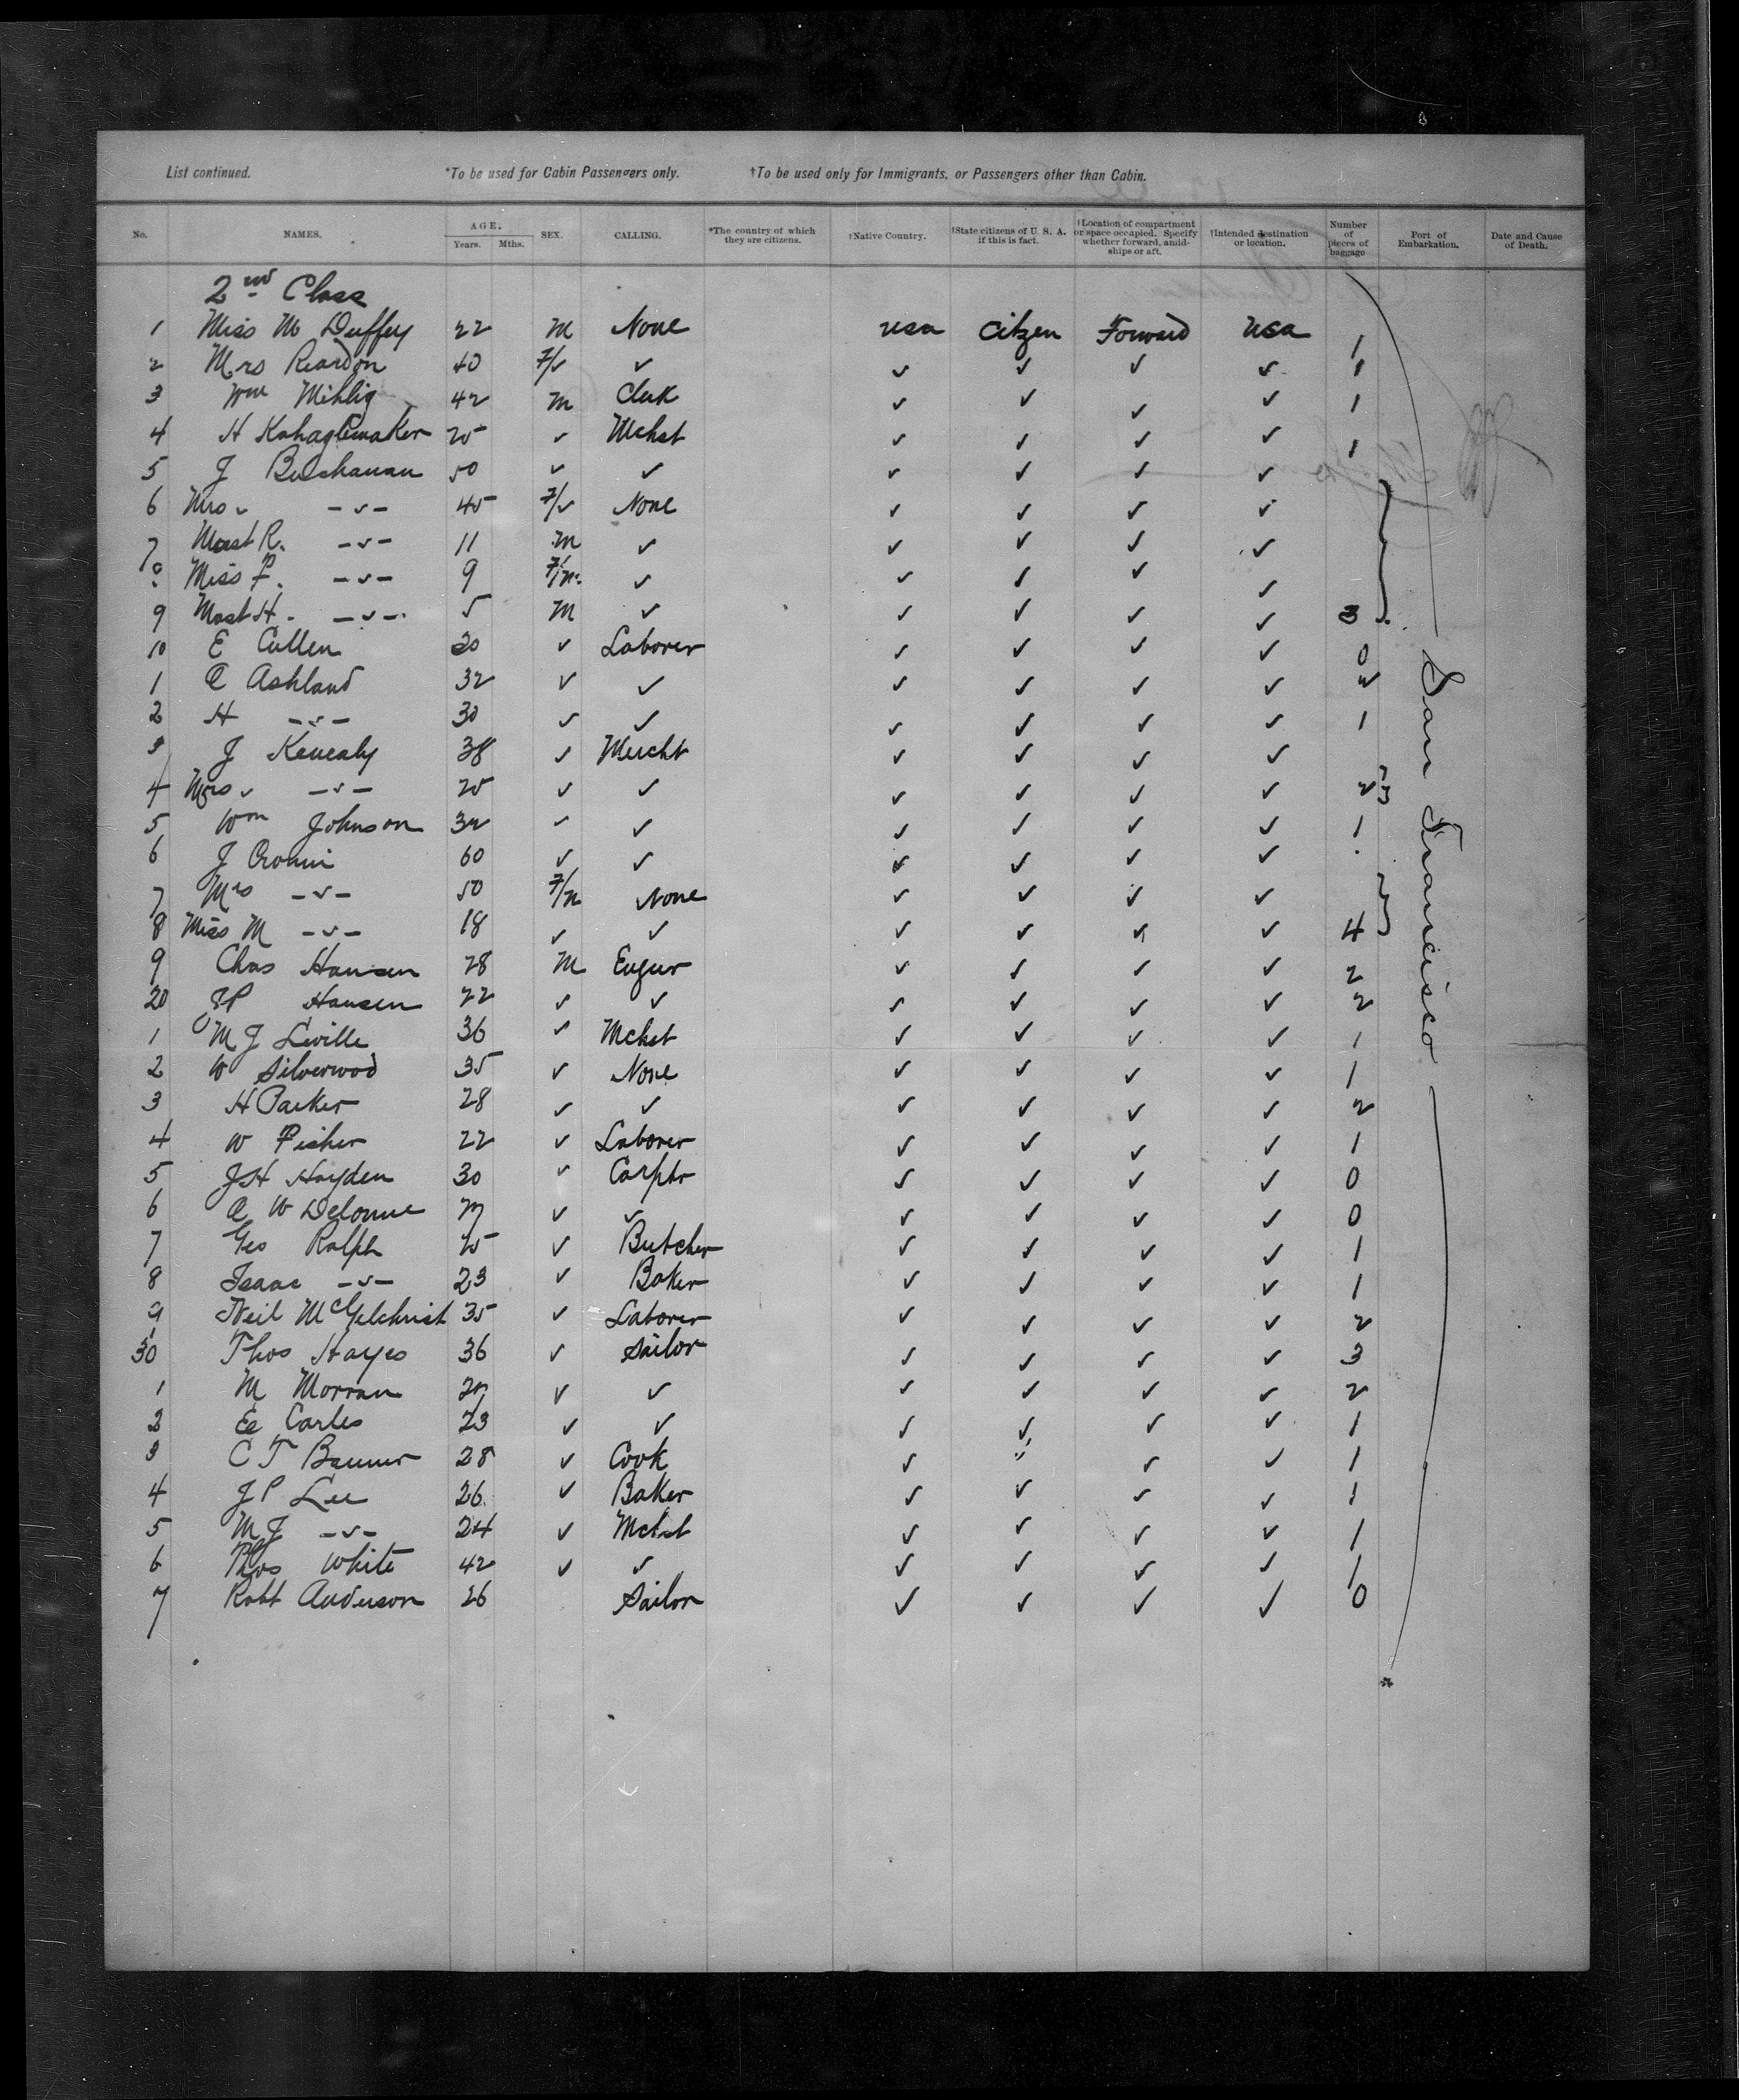 List continued. *To be used for Cabin Passengers only. †To be used only for Immigrants, or Passengers other than Cabin.
No. NAMES. AGE. Years. Mths. SEX. CALLING. *The country of which they are citizens. †Native Country. †State citizens of U. S. A. if this is fact. †Location of compartment or space occupied. Specify whether forward, amidships or aft. †Intended destination or location. Number of pieces of baggage Port of Embarkation. Date and Cause of Death.
2nd Class
1 Miss M Duffey 22 M None usa Citzen Forward usa 1
2 Mrs Reardon 40 F/✓ ✓ ✓ ✓ ✓ ✓ 1
3 Wm Mihlig 42 M Clerk ✓ ✓ ✓ ✓ 1
4 H 25 ✓ Mchst ✓ ✓ ✓ ✓ 1
5 J Buchanan 50 ✓ ✓ ✓ ✓ ✓ ✓
6 Mrs ✓ -✓- 45 F/✓ None ✓ ✓ ✓ ✓
7 Mast R. -✓- 11 M ✓ ✓ ✓ ✓ ✓
8 Miss F. -✓- 9 F/m ✓ ✓ ✓ ✓ ✓
9 Mast H. -✓- 5 M ✓ ✓ ✓ ✓ ✓ 3
10 E Cullen 30 ✓ Laborer ✓ ✓ ✓ ✓ 0
1 A Ashland 32 ✓ ✓ ✓ ✓ ✓ ✓ 2
2 H -✓- 30 ✓ ✓ ✓ ✓ ✓ ✓ 1
3 J Kenealy 38 ✓ Mercht ✓ ✓ ✓ ✓
4 Mrs ✓ -✓- 25 ✓ ✓ ✓ ✓ ✓ ✓ 2
5 Wm Johnson 32 ✓ ✓ ✓ ✓ ✓ ✓ 1
6 J Cronin 60 ✓ ✓ ✓ ✓ ✓ ✓
7 Mrs -✓- 50 F/m None ✓ ✓ ✓ ✓
8 Miss M -✓- 18 ✓ ✓ ✓ ✓ ✓ ✓ 4
9 Chas Hansen 28 M Engur ✓ ✓ ✓ ✓ 2
20 JP Hansen 22 ✓ ✓ ✓ ✓ ✓ ✓ 2
1 M J Leville 36 ✓ Mchst ✓ ✓ ✓ ✓ 1
2 W Silverwood 35 ✓ None ✓ ✓ ✓ ✓ 1
3 H Parker 28 ✓ ✓ ✓ ✓ ✓ ✓ 2
4 W Fisher 22 ✓ Laborer ✓ ✓ ✓ ✓ 1
5 JH Hayden 30 ✓ Carptr ✓ ✓ ✓ ✓ 0
6 A W Delorme ✓ ✓ ✓ ✓ ✓ ✓ 0
7 Geo Ralph 25 ✓ Butcher ✓ ✓ ✓ ✓ 1
8 Isaac -✓- 23 ✓ Baker ✓ ✓ ✓ ✓ 1
9 Neil McGilchrist 35 ✓ Laborer ✓ ✓ ✓ ✓ 2
30 Thos Hayes 36 ✓ Sailor ✓ ✓ ✓ ✓ 3
1 M Morran ✓ ✓ ✓ ✓ ✓ ✓ 2
2 Ed Carles 23 ✓ ✓ ✓ ✓ ✓ ✓ 1
3 C T Banner 28 ✓ Cook ✓ ✓ ✓ ✓ 1
4 J P Lee 26 ✓ Baker ✓ ✓ ✓ ✓ 1
5 M J -✓- 24 ✓ Mchst ✓ ✓ ✓ ✓ 1
6 Thos White 42 ✓ ✓ ✓ ✓ ✓ ✓ 1
7 Robt Anderson 26 Sailor ✓ ✓ ✓ ✓ 0
San Francisco